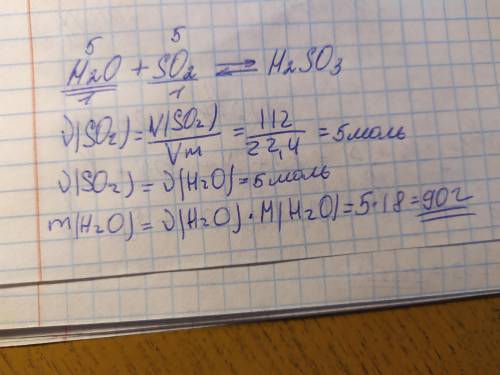 5 5
H₂O + SO₂ ⇌ H₂SO₃
1 1
ν(SO₂) = V(SO₂)/Vm = 112/22,4 = 5 моль
ν(SO₂) = ν(H₂O) = 5 моль
m(H₂O) = ν(H₂O) · M(H₂O) = 5 · 18 = 90 г